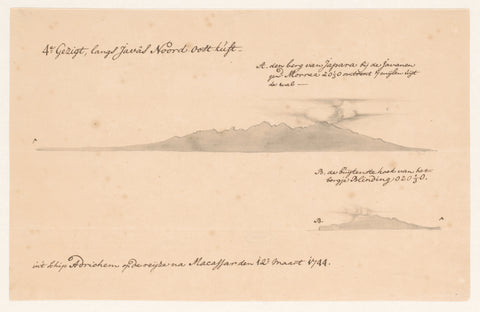 4e Gezigt, langs Javas Noord Oost kust
A. den berg van Japara bij de Javanen
Morrea 20½0 mijlen
de wal
A
B. de buytenste hoek van het
bergje Blinding O20½0.
B.
A
uit Schip Adrichem op de reijze na Macassar den 12e Maart 1744.